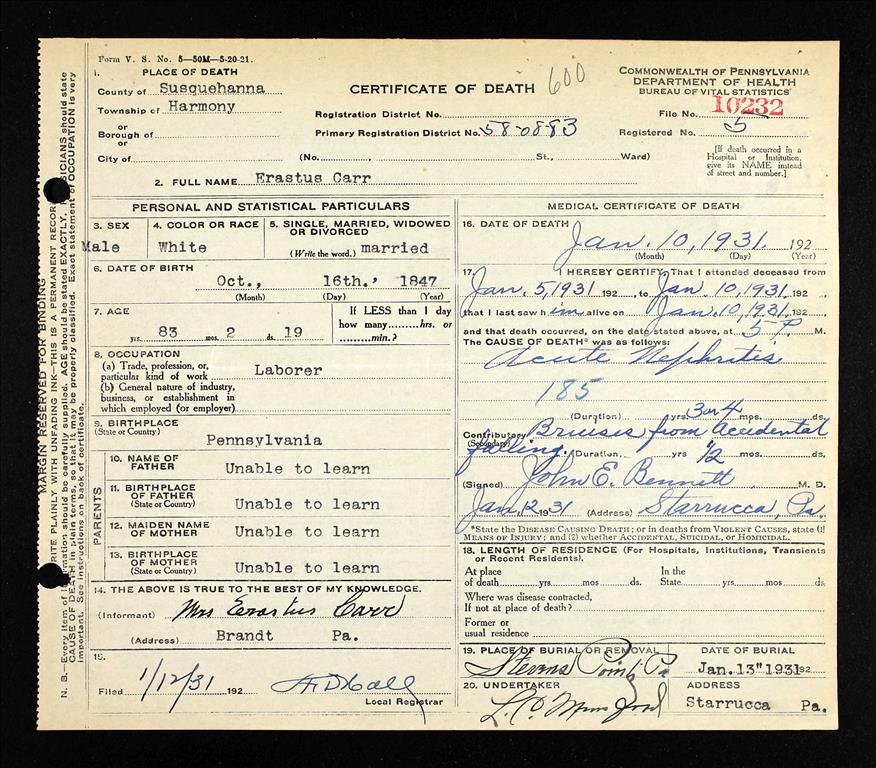 Form V. S. No. 5—50M—5-20-21.
1. PLACE OF DEATH
County of Susquehanna
Township of Harmony
or
Borough of
or
City of
CERTIFICATE OF DEATH
600
Registration District No.
Primary Registration District No. 58-08-83
(No. , St., Ward)
COMMONWEALTH OF PENNSYLVANIA
DEPARTMENT OF HEALTH
BUREAU OF VITAL STATISTICS
File No. 10232
Registered No. 5
[If death occurred in a
Hospital or Institution,
give its NAME instead
of street and number.]
2. FULL NAME Erastus Carr
PERSONAL AND STATISTICAL PARTICULARS
3. SEX
Male
4. COLOR OR RACE
White
5. SINGLE, MARRIED, WIDOWED
OR DIVORCED
(Write the word.) married
6. DATE OF BIRTH
Oct., 16th., 1847
(Month) (Day) (Year)
7. AGE
83 yrs. 2 mos. 19 ds.
If LESS than 1 day
how many hrs. or
min.?
8. OCCUPATION
(a) Trade, profession, or
particular kind of work Laborer
(b) General nature of industry,
business, or establishment in
which employed (or employer)
9. BIRTHPLACE
(State or Country) Pennsylvania
PARENTS
10. NAME OF
FATHER Unable to learn
11. BIRTHPLACE
OF FATHER
(State or Country) Unable to learn
12. MAIDEN NAME
OF MOTHER Unable to learn
13. BIRTHPLACE
OF MOTHER
(State or Country) Unable to learn
14. THE ABOVE IS TRUE TO THE BEST OF MY KNOWLEDGE.
(Informant) Mrs Erastus Carr
(Address) Brandt Pa.
15.
Filed 1/12/31 192
Local Registrar
MEDICAL CERTIFICATE OF DEATH
16. DATE OF DEATH
Jan. 10, 1931. 192
(Month) (Day) (Year)
17. I HEREBY CERTIFY, That I attended deceased from
Jan. 5, 1931 192 , to Jan. 10, 1931. 192
that I last saw him alive on Jan. 10, 1931. 192
and that death occurred, on the date stated above, at 5 P. M.
The CAUSE OF DEATH* was as follows:
Acute Nephritis
185
(Duration) yrs. 3 or 4 mos. ds.
Contributory Bruises from accidental
(Secondary)
falling. (Duration) yrs 1/2 mos. ds.
(Signed) John E. Bennett, M. D.
Jan. 12 1931 (Address) Starrucca, Pa.
*State the DISEASE CAUSING DEATH; or in deaths from VIOLENT CAUSES, state (1)
MEANS OF INJURY; and (2) whether ACCIDENTAL, SUICIDAL, or HOMICIDAL.
18. LENGTH OF RESIDENCE (For Hospitals, Institutions, Transients
or Recent Residents).
At place
of death yrs. mos. ds.
In the
State yrs. mos. ds.
Where was disease contracted,
If not at place of death?
Former or
usual residence
19. PLACE OF BURIAL OR REMOVAL
Stevens Point Pa
DATE OF BURIAL
Jan. 13" 1931 192
20. UNDERTAKER
ADDRESS
Starrucca Pa.
MARGIN RESERVED FOR BINDING
WRITE PLAINLY WITH UNFADING INK—THIS IS A PERMANENT RECORD
N. B.—Every item of information should be carefully supplied. AGE should be stated EXACTLY. PHYSICIANS should state
CAUSE OF DEATH in plain terms, so that it may be properly classified. Exact statement of OCCUPATION is very
important. See instructions on back of certificate.